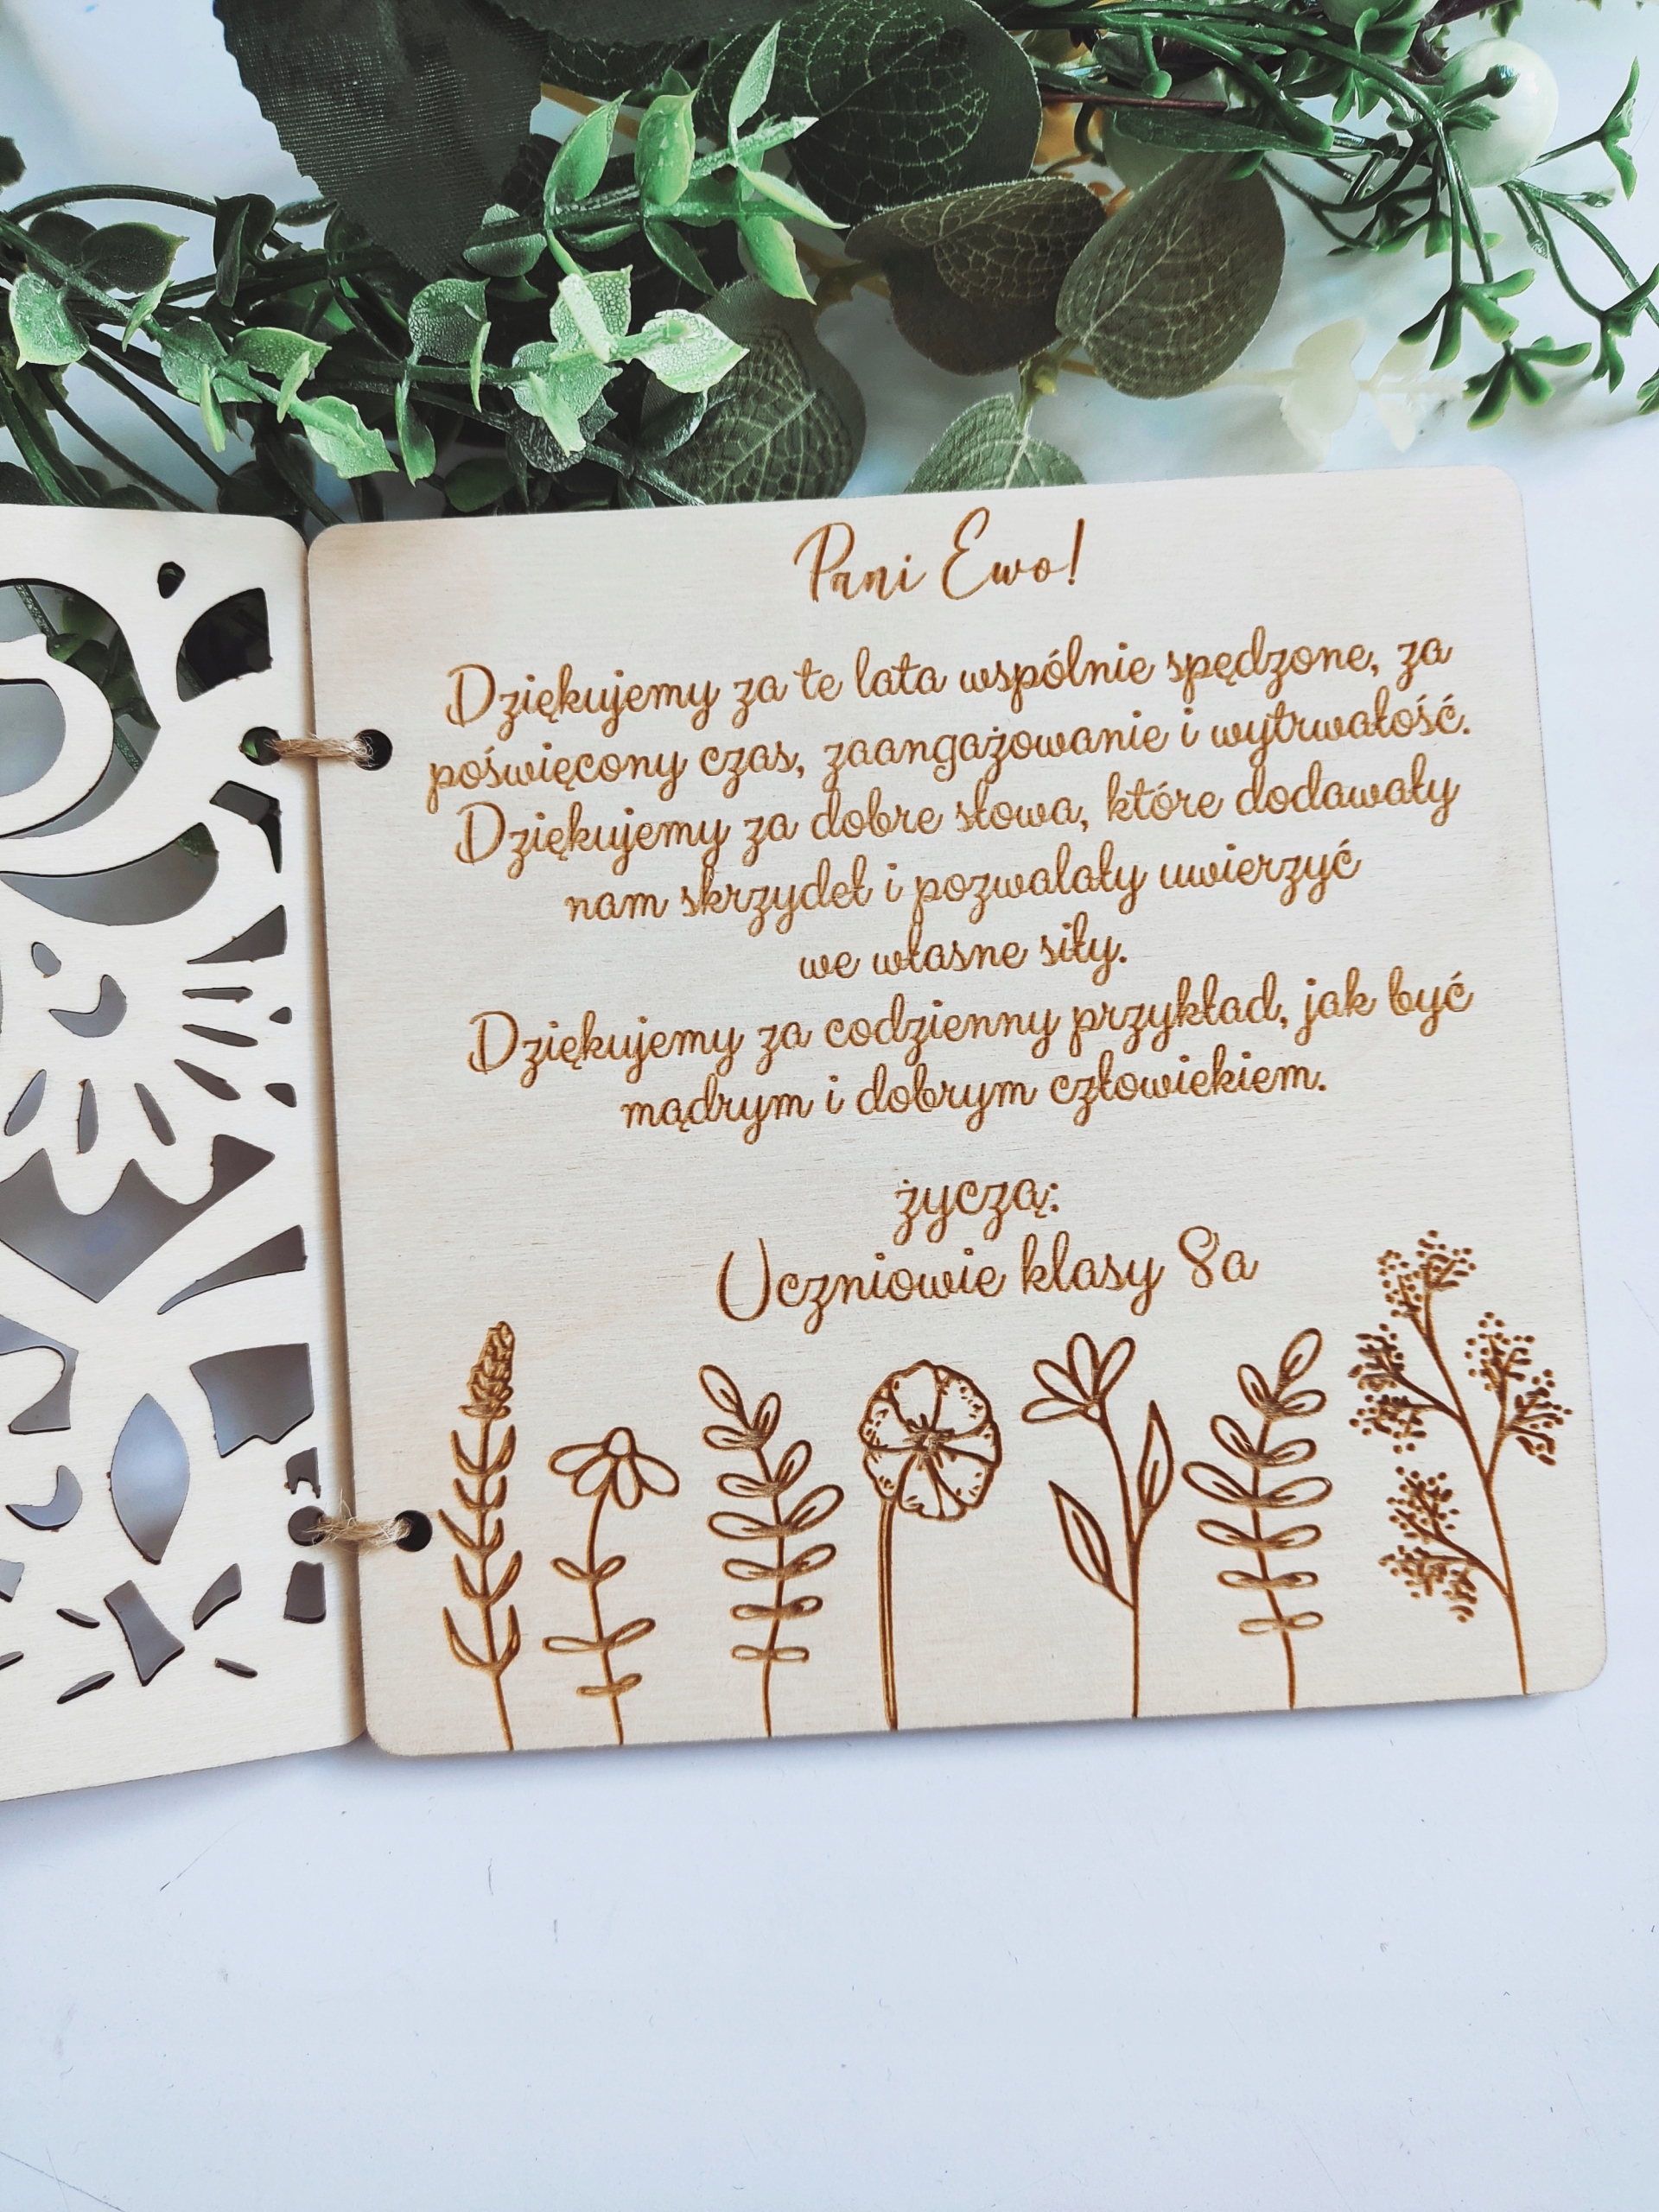 Pani Ewo!
Dziękujemy za te lata wspólnie spędzone, za
poświęcony czas, zaangażowanie i wytrwałość.
Dziękujemy za dobre słowa, które dodawały
nam skrzydeł i pozwalały uwierzyć
we własne siły.
Dziękujemy za codzienny przykład, jak być
mądrym i dobrym człowiekiem.
życzą:
Uczniowie klasy 8a